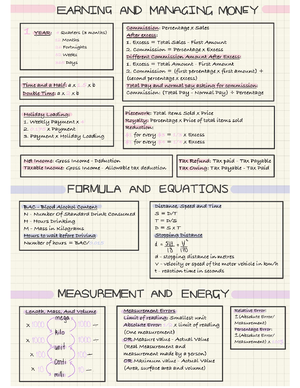 EARNING AND MANAGING MONEY
1 YEAR: - Quarters (3 months)
- Months
- Fortnights
- Weeks
- Days
Commission: Percentage x Sales
After excess:
1. Excess = Total Sales - First Amount
2. Commission = Percentage x Excess
Different Commission Amount After Excess:
1. Excess = Total Amount - First Amount
2. Commission = (first percentage x first amount) +
(second percentage x excess)
Total Pay and normal pay asking for commission:
Commission: (Total Pay - Normal Pay) ÷ Percentage
Time and a Half: a x b
Double Time: a x b
Holiday Loading:
1. Weekly Payment x
2. x Payment
3. Payment x Holiday Loading
Piecework: Total Items Sold x Price
Royalty: Percentage x Price of total items sold
Reduction:
for every x Excess
for every x Excess
Net Income: Gross Income - Deduction
Taxable Income: Gross Income - Allowable tax deduction
Tax Refund: Tax paid - Tax Payable
Tax Owing: Tax Payable - Tax Paid
FORMULA AND EQUATIONS
BAC - Blood Alcohol Content
N - Number of Standard Drink Consumed
H - Hours Drinking
M - Mass in Kilograms
Hours to wait Before Driving
Number of hours = BAC/
Distance, Speed and Time
S = D/T
T = D/S
D = S x T
Stopping Distance
d - stopping distance in metres
V - velocity or speed of the motor vehicle in km/h
t - reaction time in seconds
MEASUREMENT AND ENERGY
Length, Mass, And Volume
mega
kilo
unit
centi
milli
Measurement Errors
Limit of reading: Smallest unit
Absolute Error: x limit of reading
(One measurement)
OR Measure Value - Actual Value
(Real Measurement and
measurement made by a person)
OR Maximum Value - Actual Value
(Area, surface area and volume)
Relative Error:
± (Absolute Error/
Measurement)
Percentage Error:
± (Absolute Error/
Measurement)